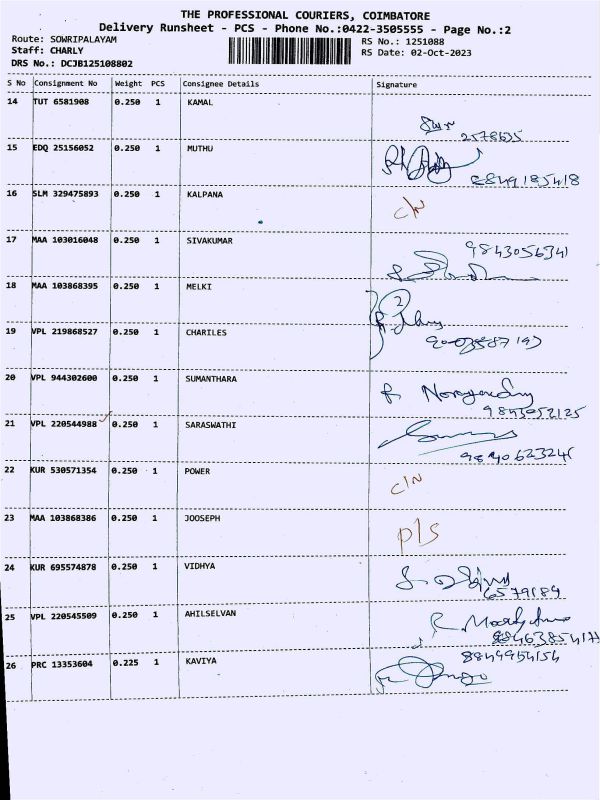 THE PROFESSIONAL COURIERS, COIMBATORE
Delivery Runsheet - PCS - Phone No.:0422-3505555 - Page No.:2
Route: SOWRIPALAYAM RS No.: 1251088
Staff: CHARLY RS Date: 02-Oct-2023
DRS No.: DCJB125108802
S No Consignment No Weight PCS Consignee Details Signature
14 TUT 6581908 0.250 1 KAMAL
2578635
15 EDQ 25156052 0.250 1 MUTHU
8849185418
16 SLM 329475893 0.250 1 KALPANA C/N
17 MAA 103016048 0.250 1 SIVAKUMAR 9843056341
18 MAA 103868395 0.250 1 MELKI 2
19 VPL 219868527 0.250 1 CHARILES
20 VPL 944302600 0.250 1 SUMANTHARA
9843052125
21 VPL 220544988 0.250 1 SARASWATHI
22 KUR 530571354 0.250 1 POWER C/N
23 MAA 103868386 0.250 1 JOOSEPH P/S
24 KUR 695574878 0.250 1 VIDHYA
6579184
25 VPL 220545509 0.250 1 AHILSELVAN
26 PRC 13353604 0.225 1 KAVIYA 8849954154